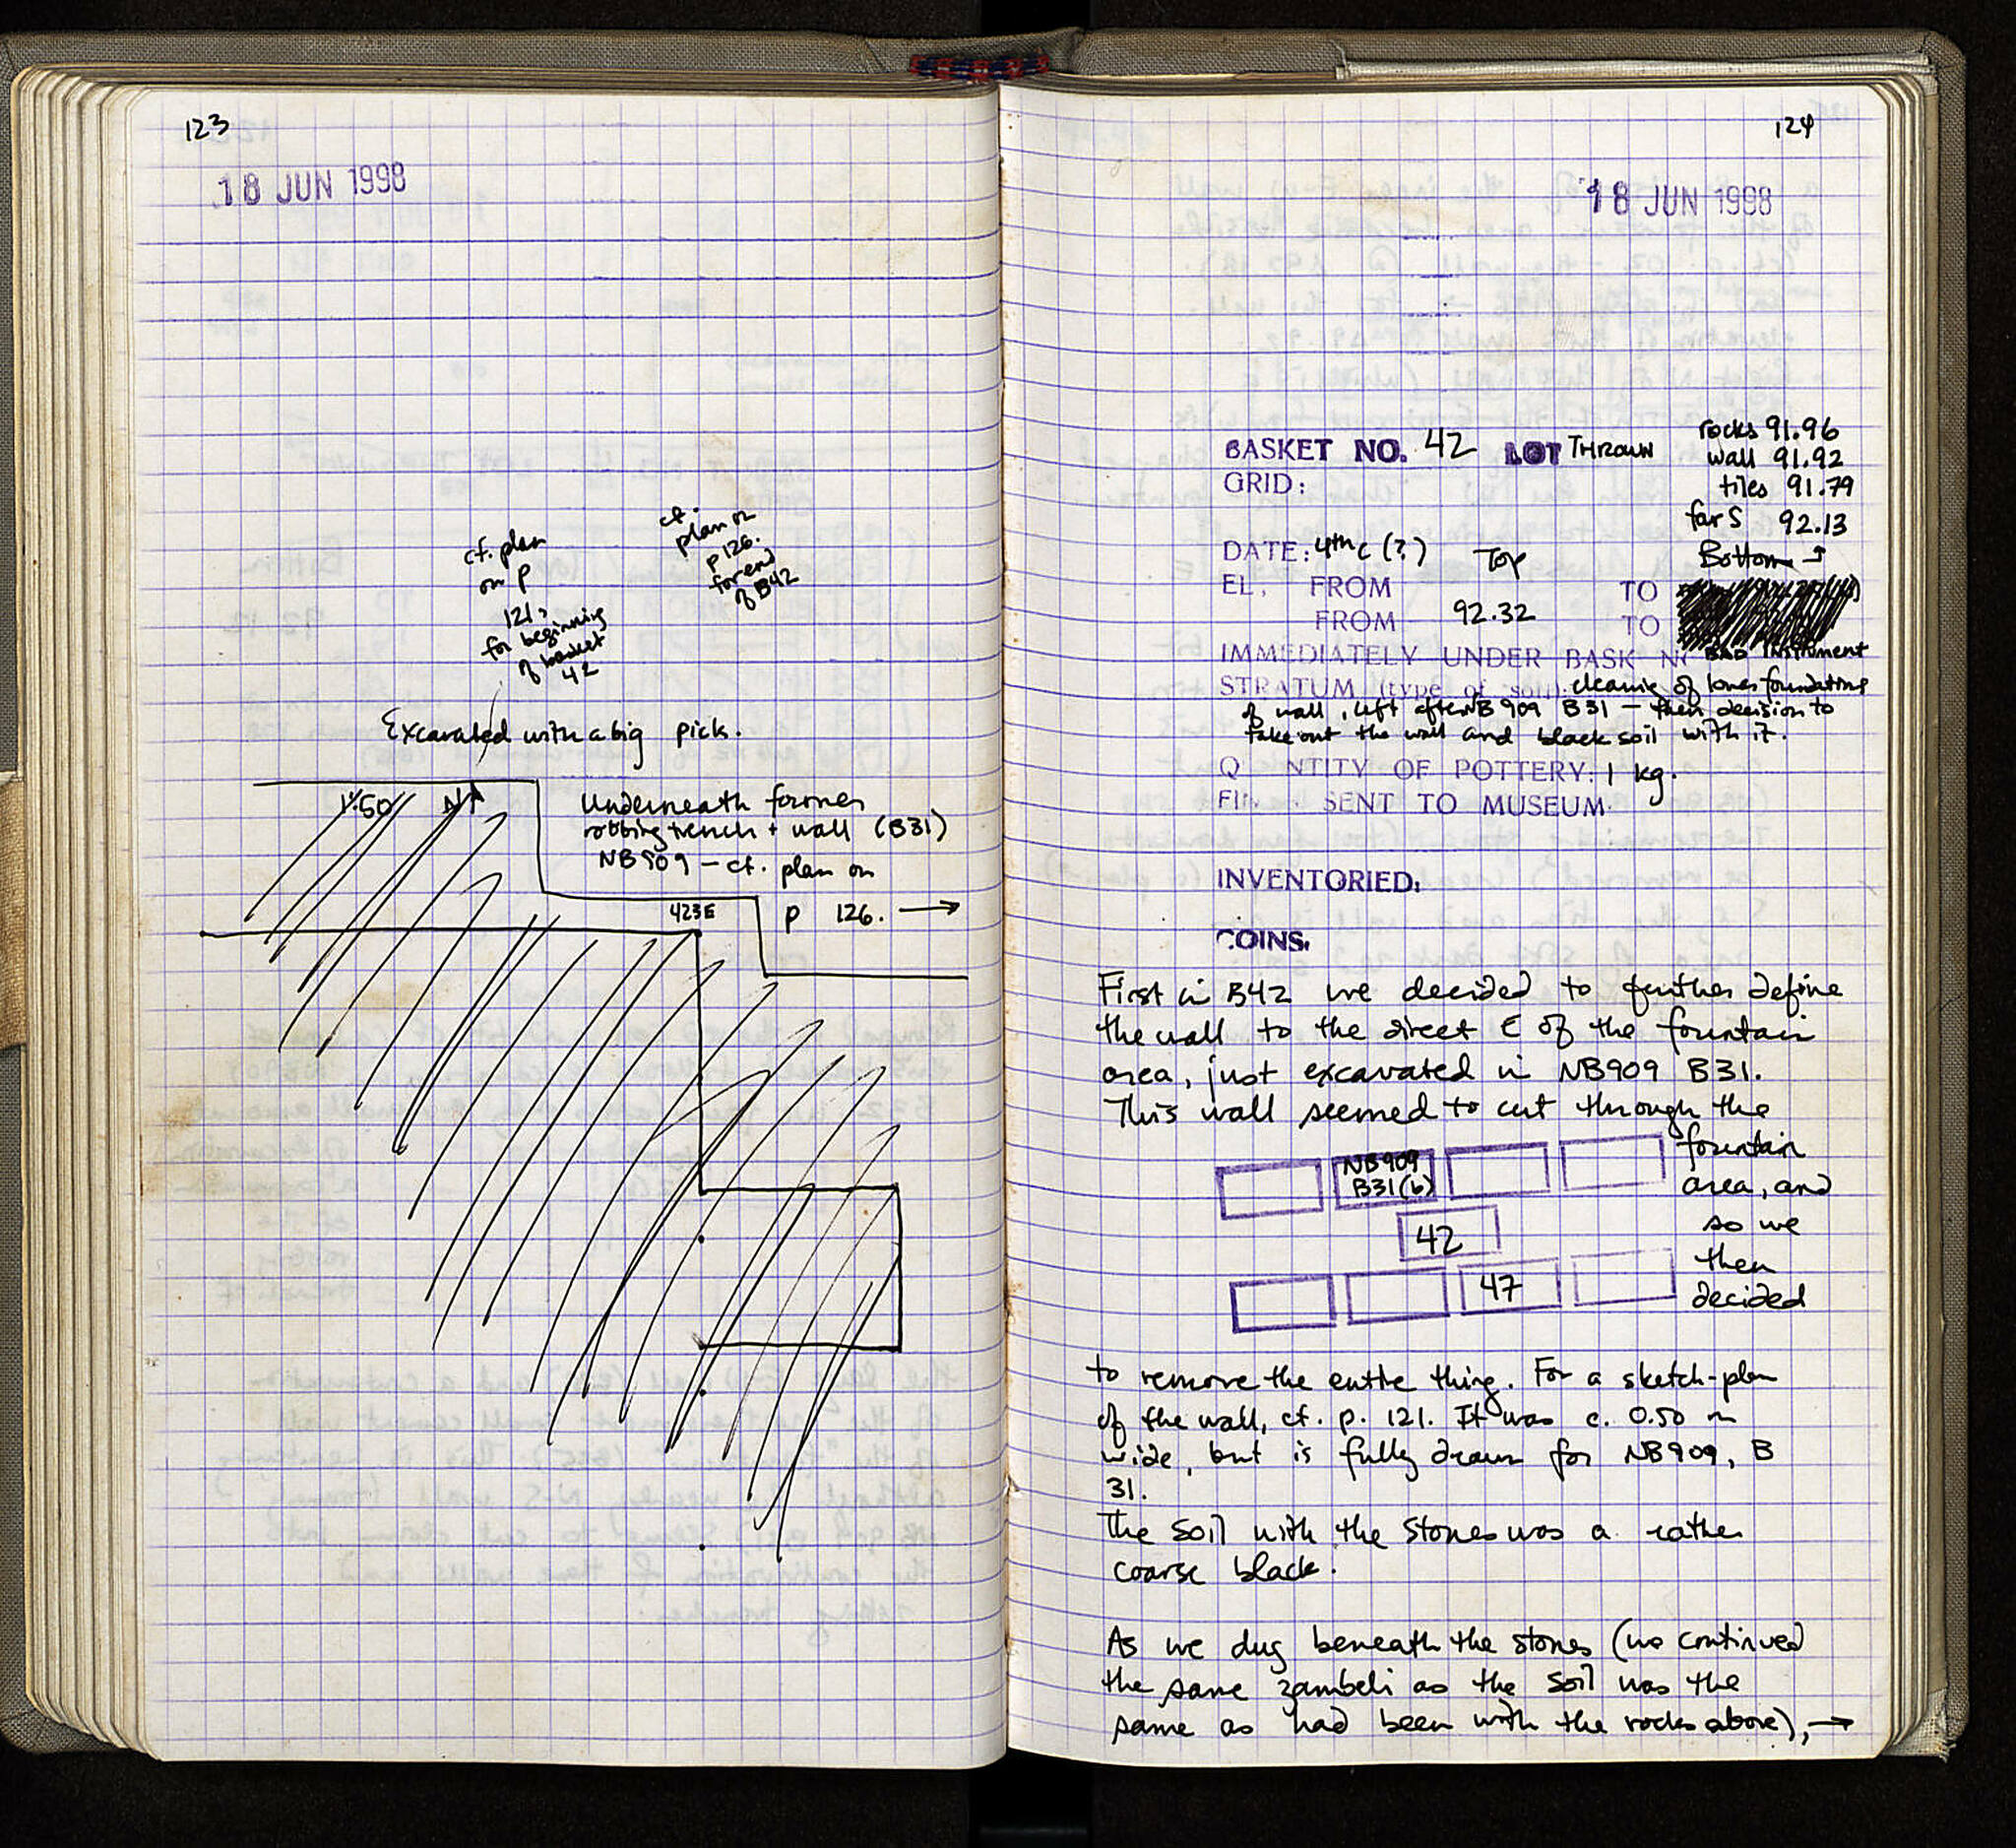 123
18 JUN 1998
cf. plan
on p
121
for beginning
of basket
42
cf.
plan on
p 126.
for end
of B42
Excavated with a big pick.
1:50 N
Underneath former
robbing trench + wall (B31)
NB909 – cf. plan on
p 126. →
423E
124
18 JUN 1998
BASKET NO. 42 LOT THROWN
rocks 91.96
wall 91.92
tiles 91.79
far S 92.13
GRID:
DATE: 4th c (?) Top Bottom
EL. FROM TO
FROM 92.32 TO
BAD instrument
IMMEDIATELY UNDER BASK N
STRATUM (type of soil): cleaning of lones foundations
of wall, left after NB 909 B31 – then decision to
take out the wall and black soil with it.
Q NTITY OF POTTERY: 1 kg.
FIN SENT TO MUSEUM.
INVENTORIED:
COINS.
First in B42 we decided to further define
the wall to the direct E of the fountain
area, just excavated in NB909 B31.
This wall seemed to cut through the
fountain
area, and
so we
then
decided
NB909
B31(b)
42
47
to remove the entire thing. For a sketch-plan
of the wall, cf. p. 121. It was c. 0.50 m
wide, but is fully drawn for NB909, B
31.
The soil with the stones was a rather
coarse black.
As we dug beneath the stones (we continued
the same zambeli as the soil was the
same as had been with the rocks above), →